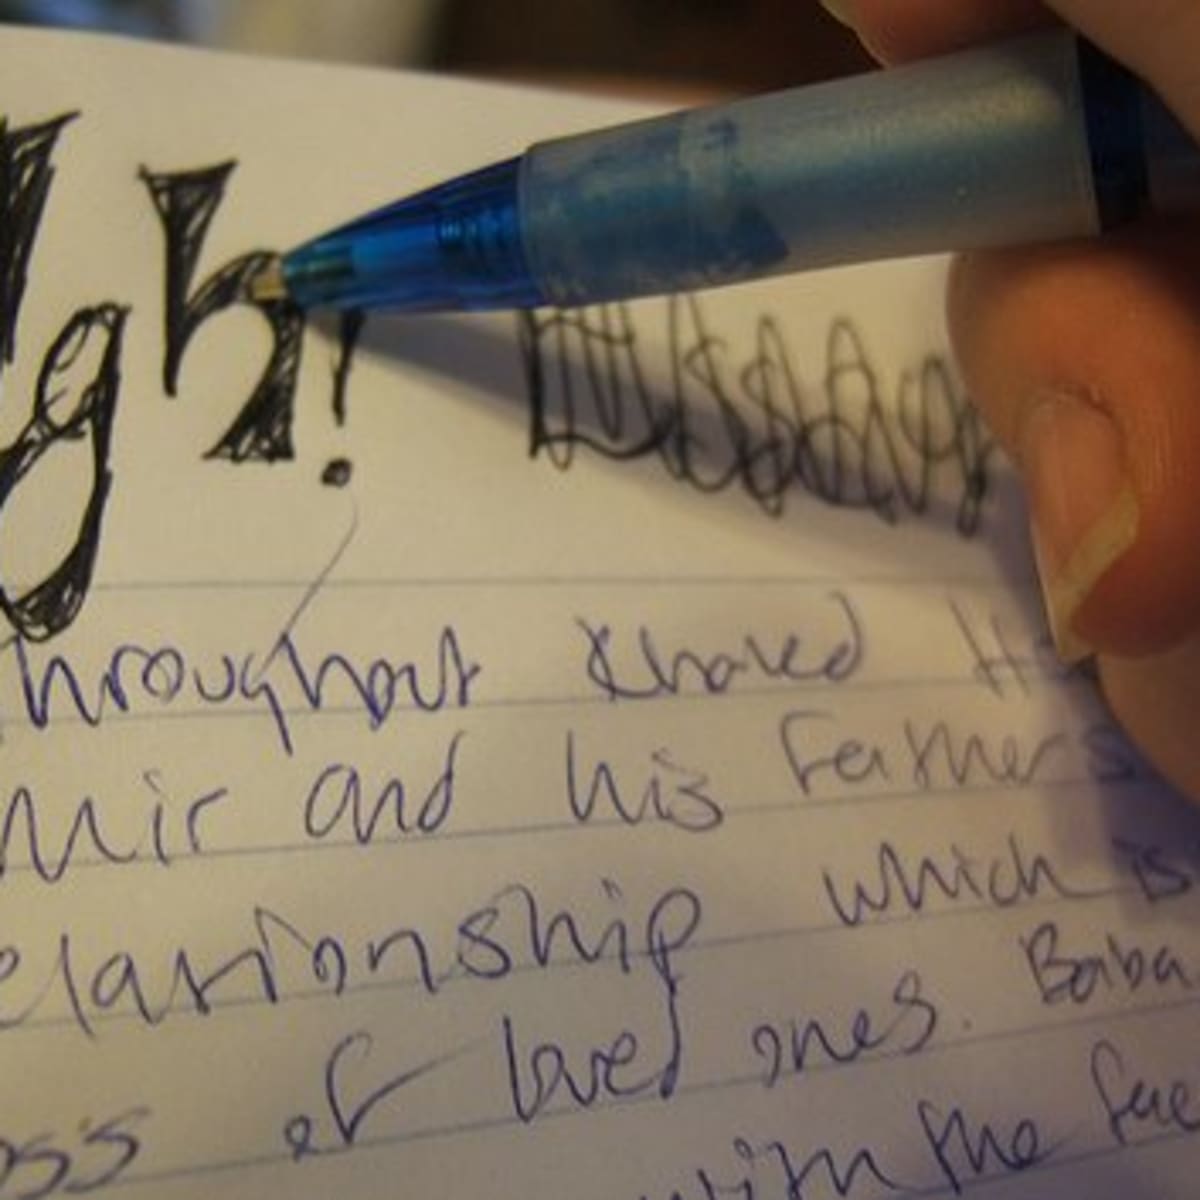 Ugh!
Throughout Khaled H
Amir and his Fathers
relationship which is
loss of loved ones. Baba
with the